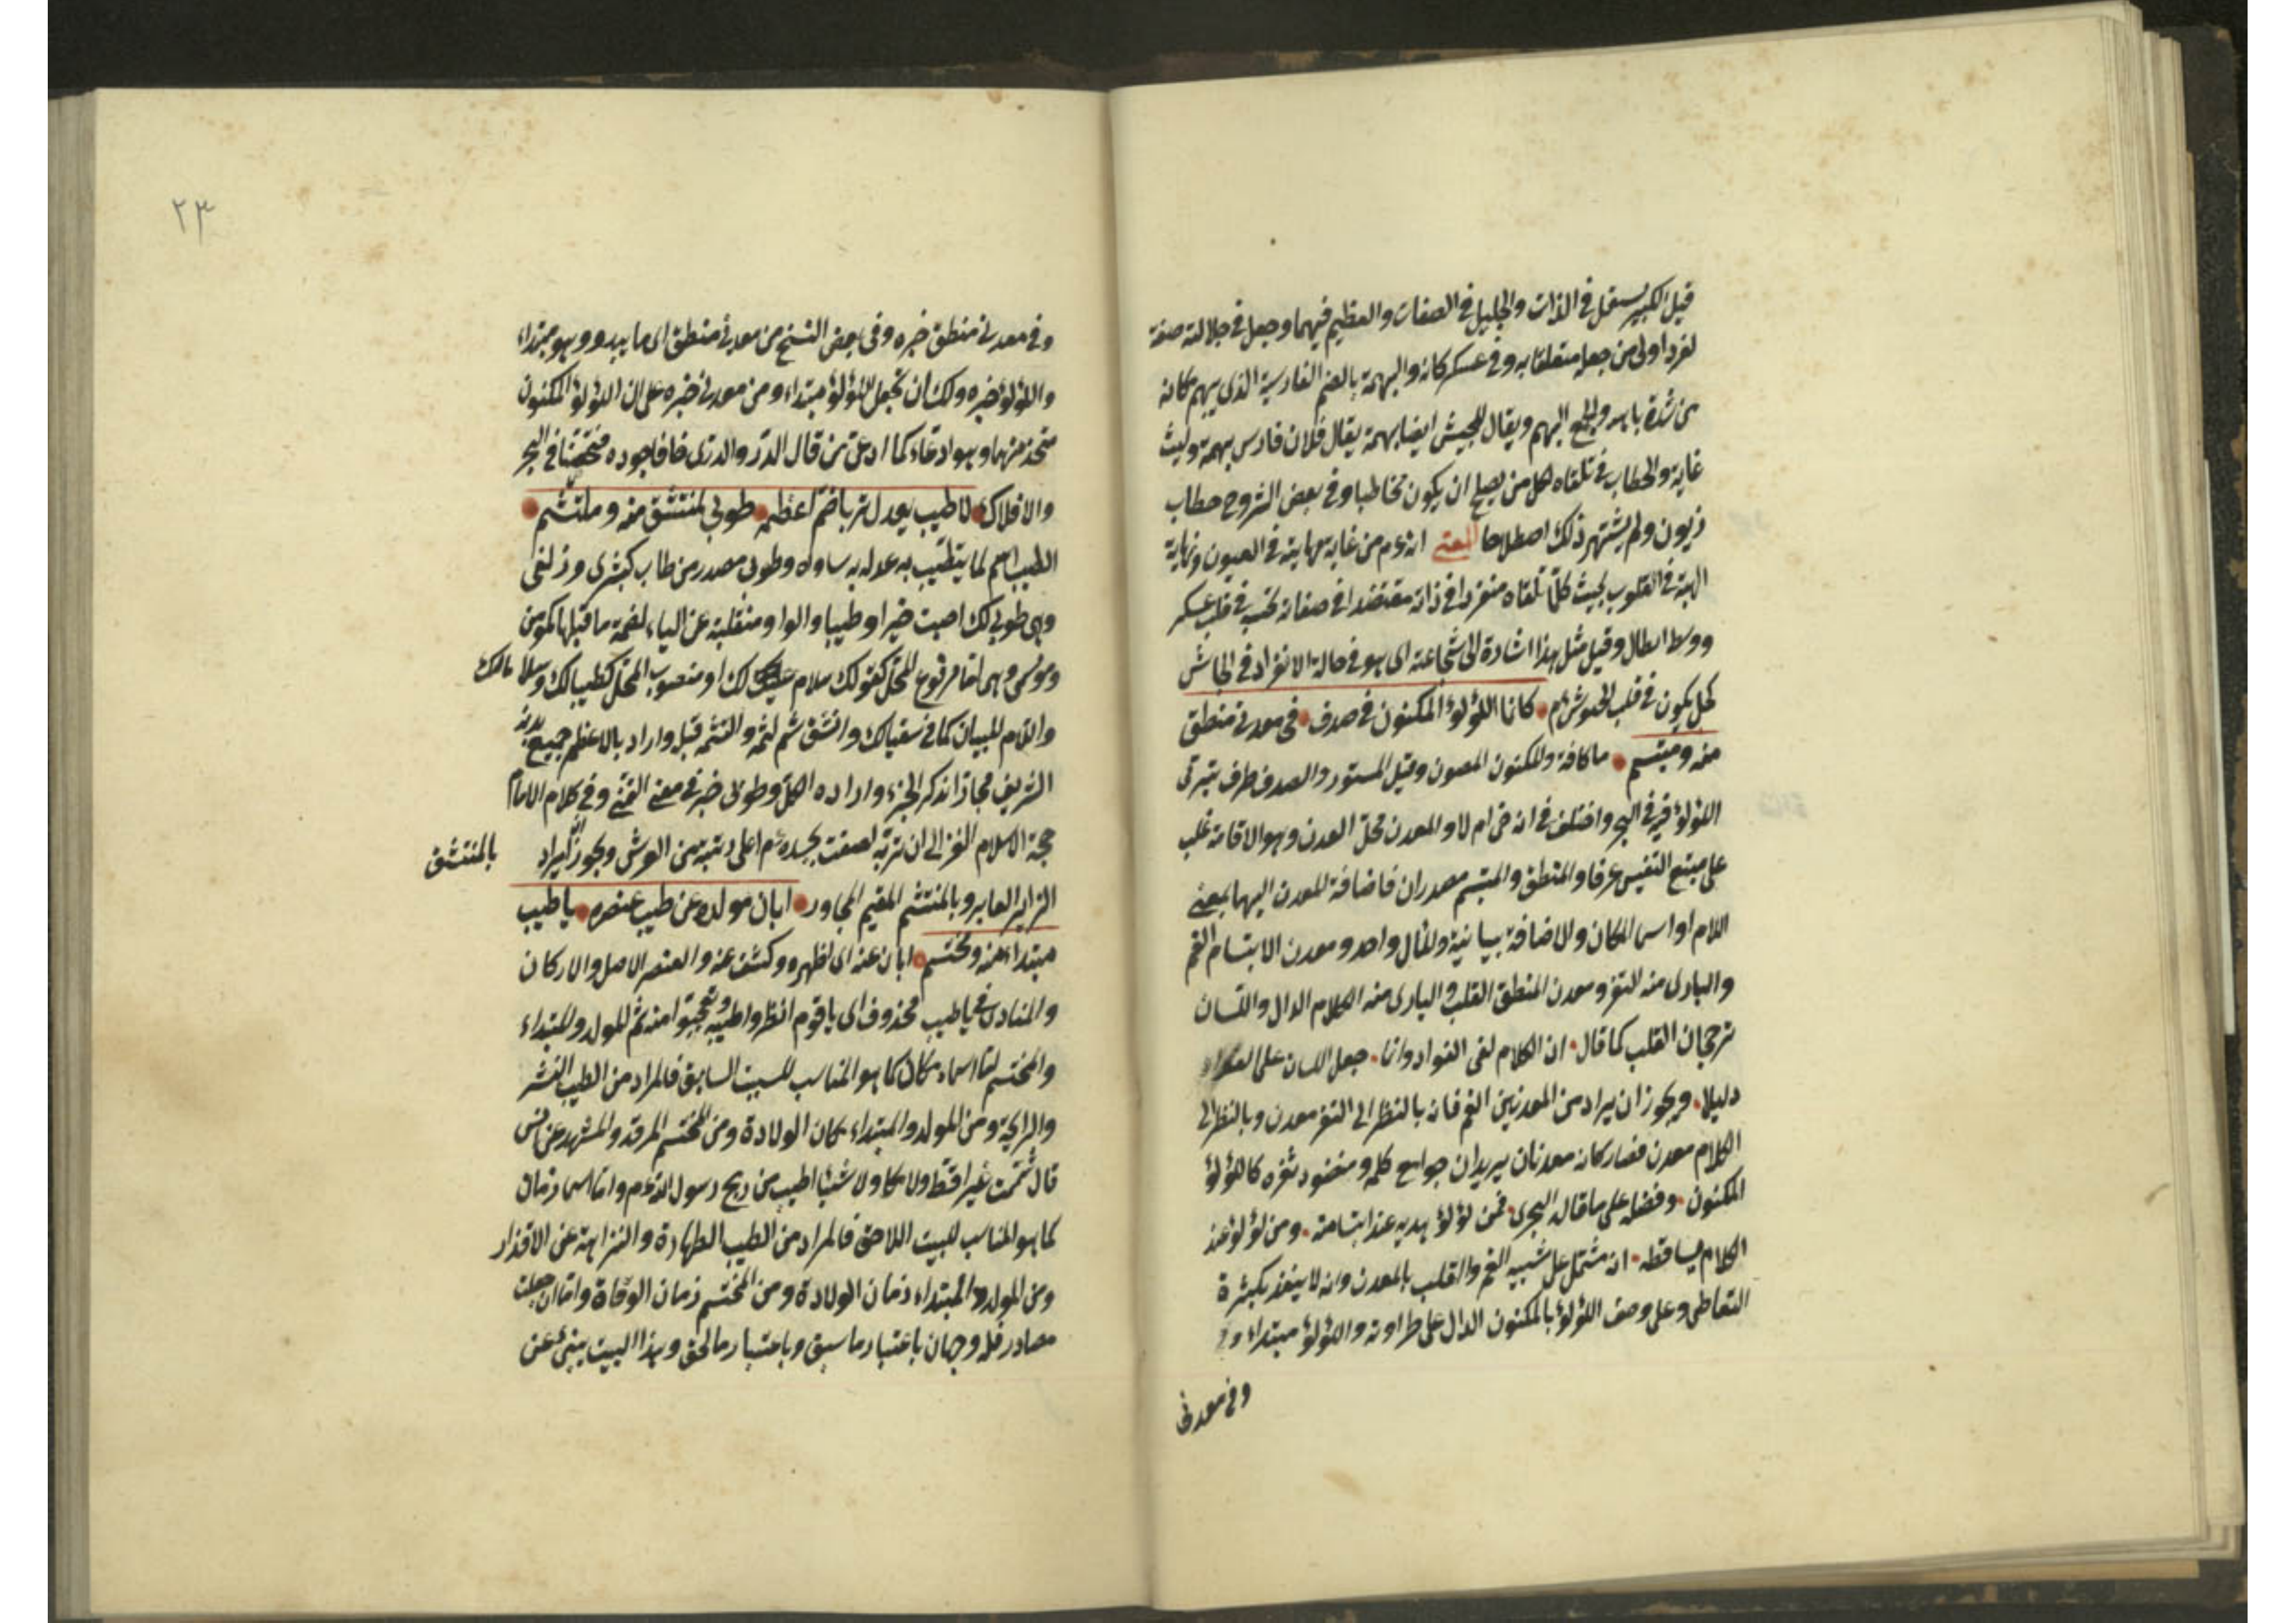 قيل الكبير يستعمل في الذات والجليل في الصفات والعظيم فيهما وجعل في جلالته صفة
لفرد اولى من جعله متعلقا به وفي عسكر كانه والبهمة بالضم الفارس الذي يبهم مكانه
من شدة باسه والجمع البهم ويقال للجيش ايضا بهمة يقال فلان فارس بهمة وليث
غابة والخطاب في تلقاه لكل من يصلح ان يكون مخاطبا وفي بعض الشروح خطاب
ولم يشتهر ذلك اصطلاحا المعنى انه عم من غاية مهابته في العيون ونهاية
الهيبة في القلوب بحيث كلما تلقاه منفردا في ذاته في صفاته في قلب عسكر
ووسط ابطال وقيل مثل هذا اشارة الى شجاعته اي هو في حالة الانفراد في الجاش
كمن يكون في قلب الجيوش كانما اللؤلؤ المكنون في صدف في معدني منطق
منه ومبتسم ما كافة والمكنون المصون وقيل المستور والصدف ظرف يتربى
اللؤلؤ فيه في البحر واختلف في انه حي ام لا والمعدن محل العدن وهو الاقامة غلب
على منبع النفيس عرفا والمنطق والمبتسم مصدران فاضافة المعدن اليهما بمعنى
اللام او اسما المكان والاضافة بيانية والمآل واحد ومعدن الابتسام الفم
والبادي منه الثغر ومعدن المنطق القلب والبادي منه الكلام الدال واللسان
ترجمان القلب كما قال ان الكلام لفي الفؤاد وانما جعل اللسان على الفؤاد
دليلا ويجوز ان يراد من المعدنين الفم فانه بالنظر الى الثغر معدن وبالنظر الى
الكلام معدن فصار كانه معدنان يريد ان جوامع كلمه ومنضود ثغره كاللؤلؤ
المكنون وفضله على ما قال البحتري فمن لؤلؤ يبديه عند ابتسامه ومن لؤلؤ عند
الكلام يساقطه انه مشتمل على تشبيه الفم والقلب بالمعدن وانه لا ينفد بكثرة
التعاطي وعلى وصف اللؤلؤ بالمكنون الدال على طراوته واللؤلؤ مبتداء
وفي معدني
٢٣
وفي معدني منطق خبره وفي بعض النسخ من معدني منطق اي ما يبدو وهو مبتداء
واللؤلؤ خبره ولك ان تجعل اللؤلؤ مبتداء ومن معدني خبره على ان اللؤلؤ المكنون
متخذ منهما وهو ادعاء كما ادعى من قال الدر والدري خافا جوده فتحصنا في البحر
والافلاك لا طيب يعدل تربا ضم اعظمه طوبى لمنتشق منه وملتثم
الطيب اسم لما يتطيب به عدله به ساواه وطوبى مصدر من طاب كبشرى وزلفى
وهي طوبى لك اصبت خيرا وطيبا والواو منقلبة عن الياء لضمة ما قبلها كموقن
وموسر وهي اما مرفوع المحل كقولك سلام لك او منصوب المحل كطيبا لك وسلاما لك
واللام للبيان كما في سقيا لك وانتشق شم لثمه والتثمه قبل واراد بالاعظم جميع بدنه
الشريف مجازا بذكر الجزء وارادة الكل وطوبى خبر في معنى التمني وفي كلام الامام
حجة الاسلام الغزالي ان تربة لصقت بجسده عم اعلى رتبة من العرش ويجوز ان يراد
بالمنتشق
الزاير العابر وبالملتثم المقيم المجاور ابان مولده عن طيب عنصره يا طيب
مبتداء منه ومختتم ابان عنه اي اظهره وكشف عنه والعنصر الاصل والاركان
والمنادى في يا طيب محذوف اي يا قوم انظروا طيبه وتعجبوا منه ثم المولد والمبتداء
والمختتم اما اسماء مكان كما هو المناسب للبيت السابق فالمراد من الطيب النشر
والرايحة ومن المولد والمبتداء مكان الولادة ومن المختتم المرقد والمشهد عن انس
قال شممت عنبرا قط ولا مسكا ولا شيئا اطيب من ريح رسول الله عم واما اسما زمان
كما هو المناسب للبيت اللاحق فالمراد من الطيب الطهارة والنزاهة عن الاقذار
ومن المولد والمبتداء زمان الولادة ومن المختتم زمان الوفاة واما ان جعلت
مصادر فله وجهان باعتبار ما سبق وباعتبار ما لحق وهذا البيت ينبئ عن